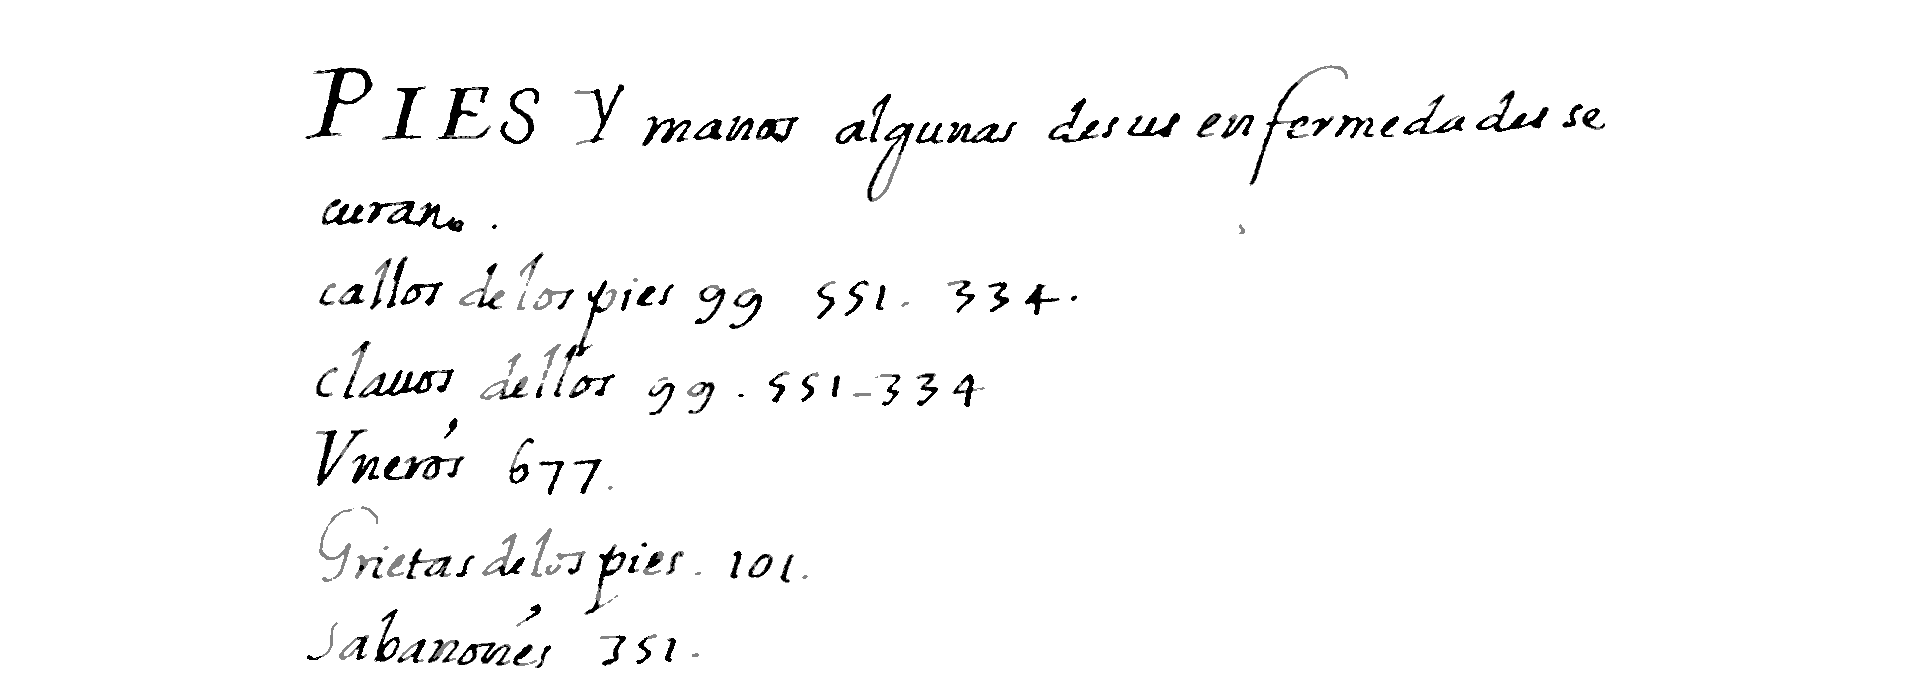 PIES Y manos algunas desus enfermedades se
curan.
callos delos pies 99 551. 334.
clauos dellos 99. 551-334
Vnerós 677.
Grietas delos pies. 101.
sabanonés 351.